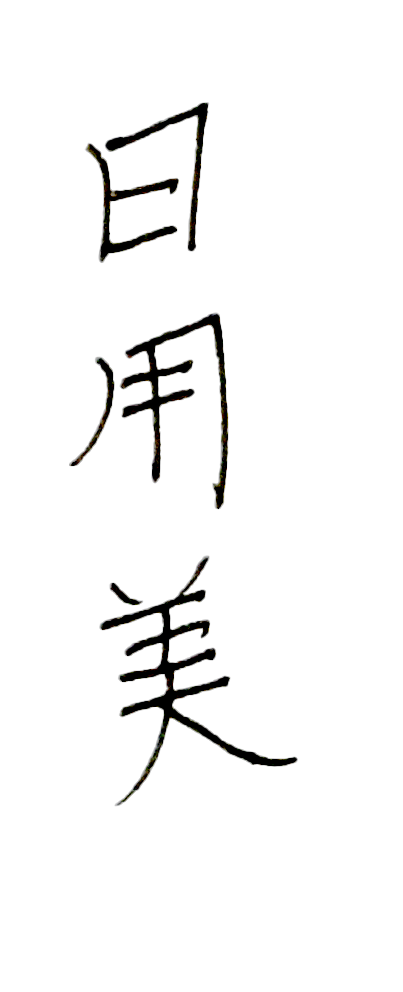 日用美